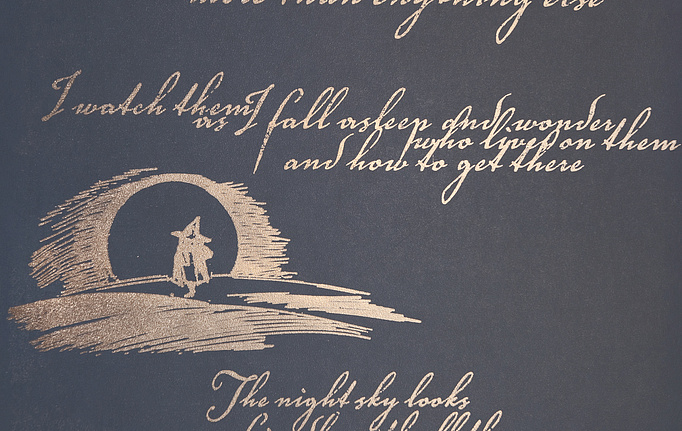 more than anything else
I watch them
as I fall asleep and wonder
who lives on them
and how to get there
The night sky looks